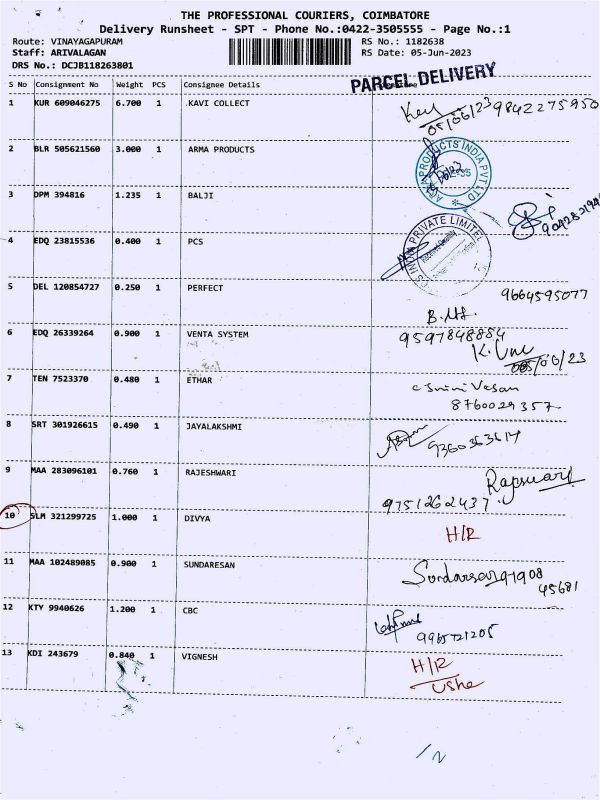 THE PROFESSIONAL COURIERS, COIMBATORE
Delivery Runsheet - SPT - Phone No.:0422-3505555 - Page No.:1
Route: VINAYAGAPURAM RS No.: 1182638
Staff: ARIVALAGAN RS Date: 05-Jun-2023
DRS No.: DCJB118263801
PARCEL DELIVERY
S No Consignment No Weight PCS Consignee Details
1 KUR 609046275 6.700 1 .KAVI COLLECT
05/06/23 9842275950
2 BLR 505621560 3.000 1 ARMA PRODUCTS
ARMA PRODUCTS INDIA PVT LTD
3 DPM 394816 1.235 1 BALJI
4 EDQ 23815536 0.400 1 PCS
INDIA PRIVATE LIMITED
5 DEL 120854727 0.250 1 PERFECT
9664595077
6 EDQ 26339264 0.900 1 VENTA SYSTEM
9597848854
7 TEN 7523370 0.480 1 ETHAR
8760029357
8 SRT 301926615 0.490 1 JAYALAKSHMI
9360363614
9 MAA 283096101 0.760 1 RAJESHWARI
9751262437
10 SLM 321299725 1.000 1 DIVYA
H/R
11 MAA 102489085 0.900 1 SUNDARESAN
91908
45681
12 KTY 9940626 1.200 1 CBC
9965721205
13 KDI 243679 0.840 1 VIGNESH
H/R
Usha